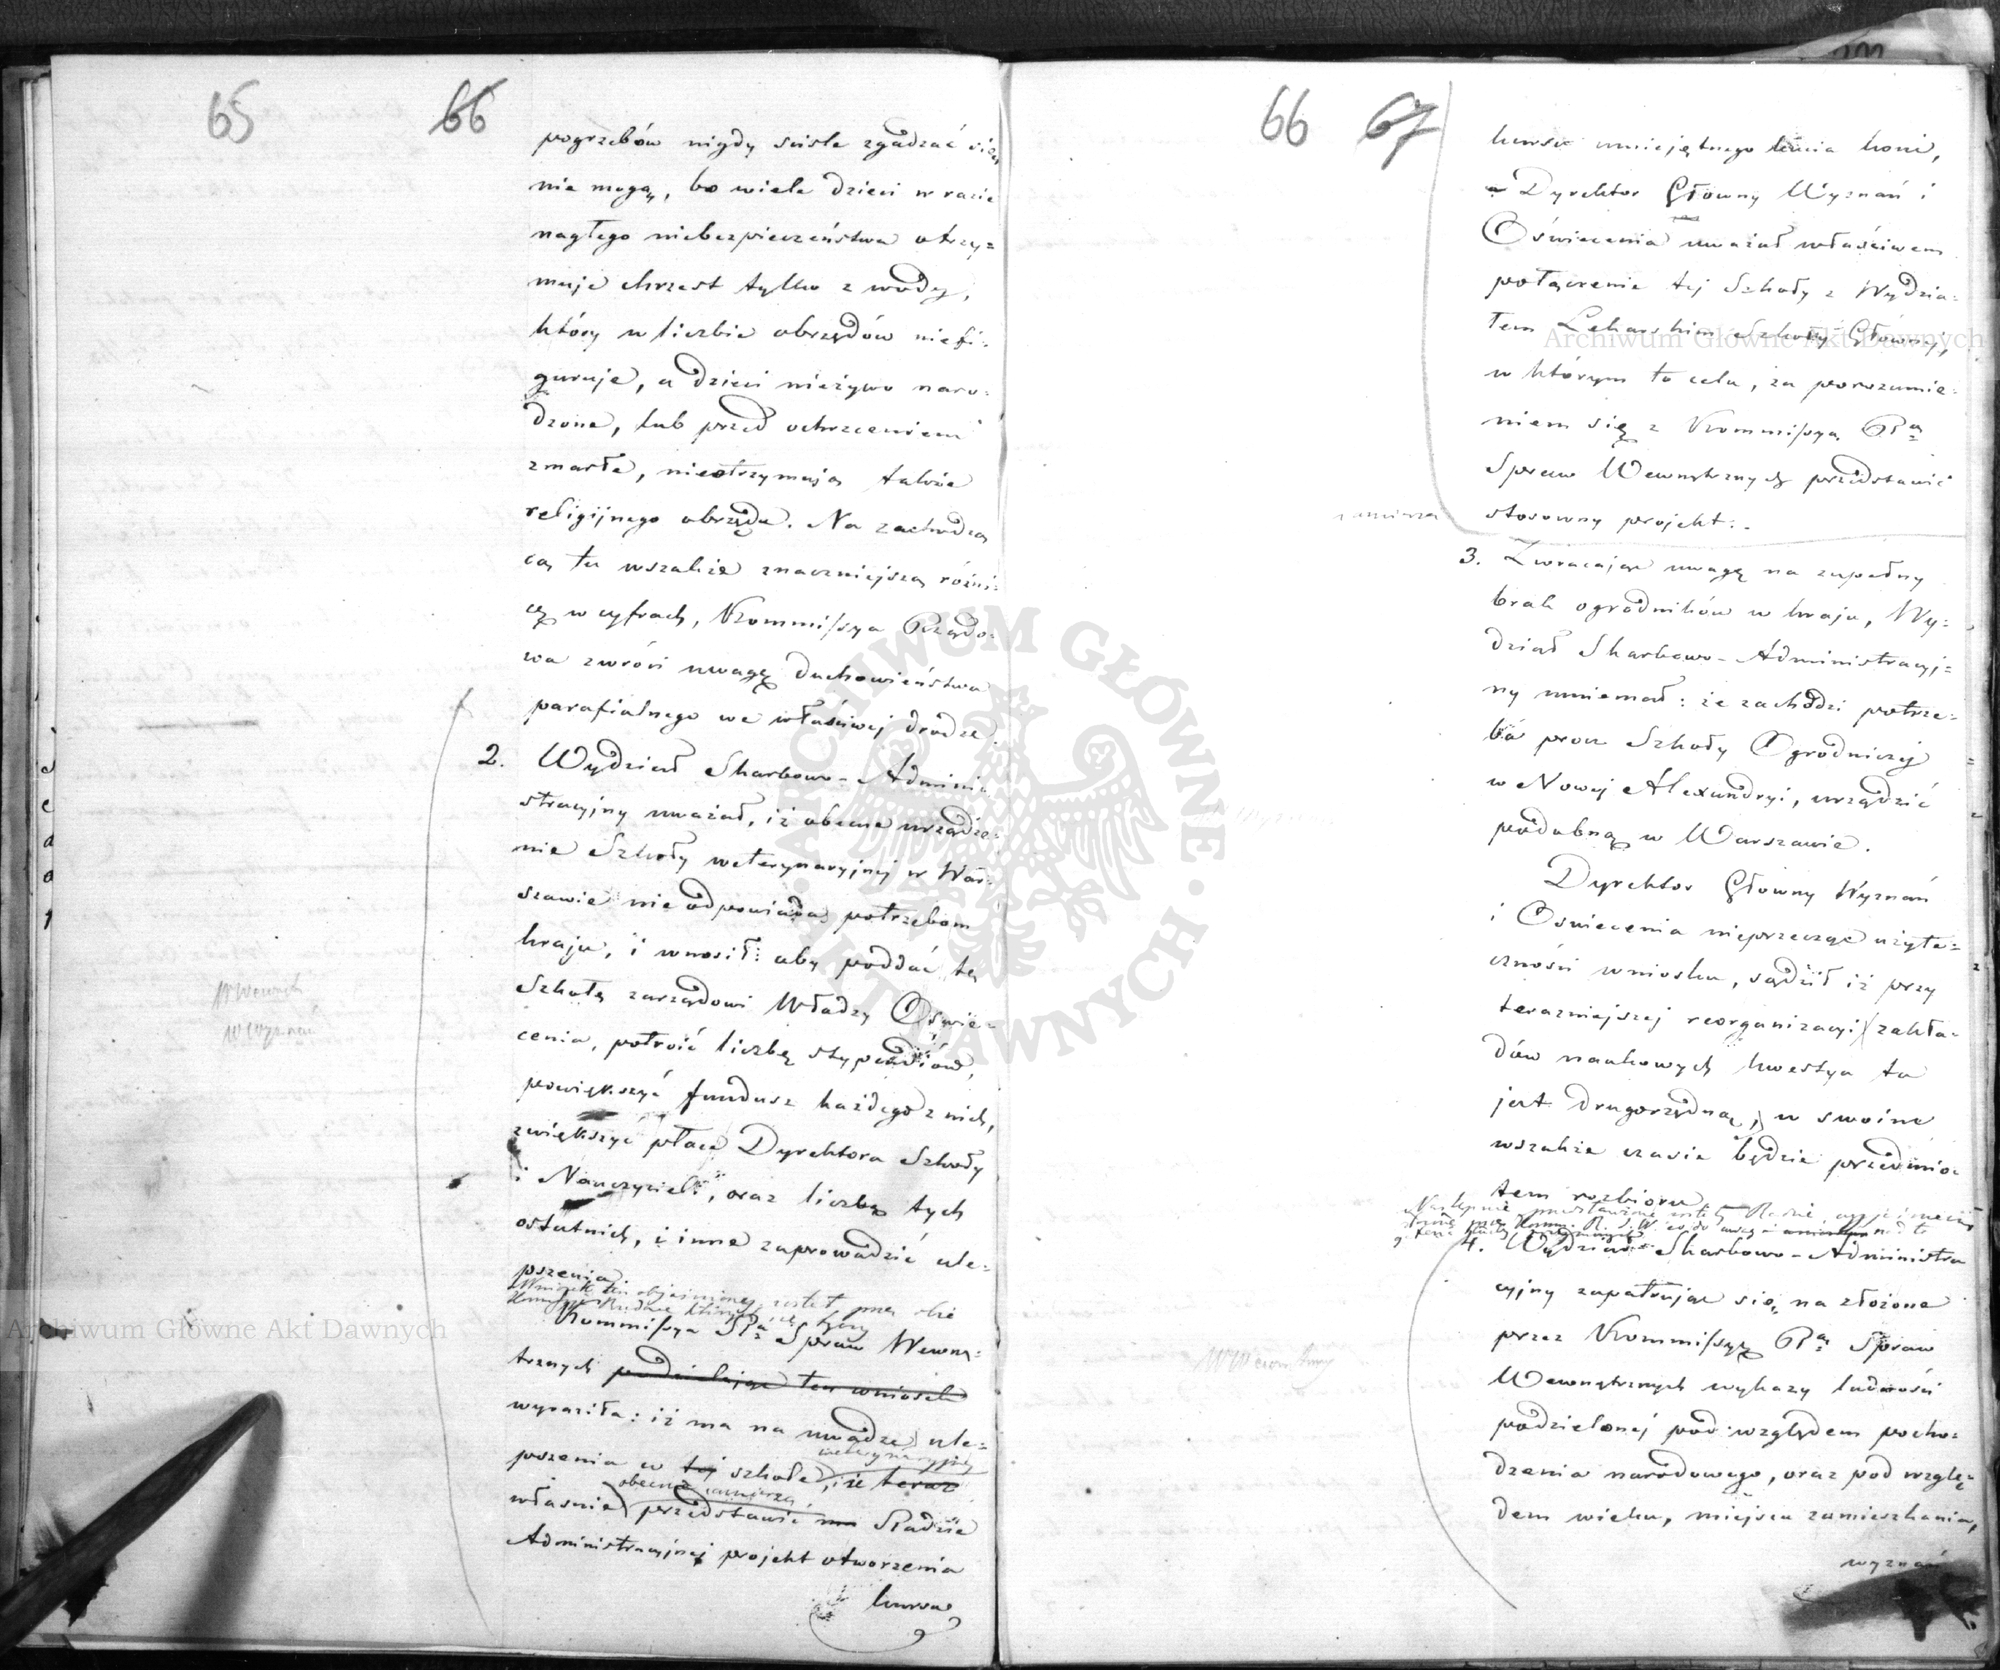 65
66
pogrzebów nigdy ściśle zgadzać się
nie mogą, bo wiele dzieci w razie
nagłego niebezpieczeństwa otrzy=
muje chrzest tylko z wody,
który w liczbie obrzędów niefi=
guruje, a dzieci nieżywo naro=
dzone, lub przed ochrzceniem
zmarłe, nieotrzymują także
religijnego obrzędu. Na zachodzą
cą tu wszakże znaczniejszą różni=
cę w cyfrach, Kommissya Rządo=
wa zwróci uwagę duchowieństwa
parafialnego we właściwej drodze.
2. Wydział Skarbowo-Admini
stracyjny uważał, iż obecne urządze=
nie Szkoły weterynaryjnej w War=
szawie nie odpowiada potrzebom
kraju, i wnosił: aby poddać tę
Szkołę zarządowi Władzy Oświe=
cenia, potroić liczbę stypendiów,
powiększyć fundusz każdego z nich,
zwiększyć płacę Dyrektora Szkoły
i Nauczycieli, oraz liczbę tych
ostatnich, i inne zaprowadzić ule=
pszenia.
Wniosek ten objaśniony został przez obie
Kommissye Rządowe
Kommissya Rª Spraw Wewnę=
trznych podzielając ten wniosek
wyraziła: iż ma na uwadze ule=
weterynaryjnej
pszenia w tej szkole, iż teraz
obecnie zamierza
właśnie przedstawić Radzie
Administracyjnej projekt otworzenia
kursu
W Wewnęt
W Wyznań
66
67
kursu umiejętnego kucia koni,
a Dyrektor Główny Wyznań i
Oświecenia uważał właściwem
połączenie tej Szkoły z Wydzia=
łem Lekarskim Szkoły Głównej,
w którym to celu, za porozumie=
niem się z Kommissyą Rª
Spraw Wewnętrznych przedstawić
zamierza
stosowny projekt.
3. Zwracając uwagę na zupełny
brak ogrodników w kraju, Wy=
dział Skarbowo-Administracyj=
ny mniemał: że zachodzi potrze=
ba prócz Szkoły Ogrodniczej
w Nowej Alexandryi, urządzić
podobną w Warszawie.
Dyrektor Główny Wyznań
i Oświecenia nieprzecząc użyte=
czności wniosku, sądził iż przy
teraźniejszej reorganizacyi zakła=
dów naukowych kwestya ta
jest drugorzędną, w swoim
wszakże czasie będzie przedmio=
tem rozbioru
4. Wydział Skarbowo-Administra
cyjny zapatrując się na złożone
przez Kommissyę Rª Spraw
Wewnętrznych wykazy ludności
podzielonej pod względem pocho=
dzenia narodowego, oraz pod wzglę=
dem wieku, miejsca zamieszkania,
wyznań
W Wewnętrzny
Archiwum Główne Akt Dawnych
Archiwum Główne Akt Dawnych
ARCHIWUM GŁÓWNE · AKT DAWNYCH ·